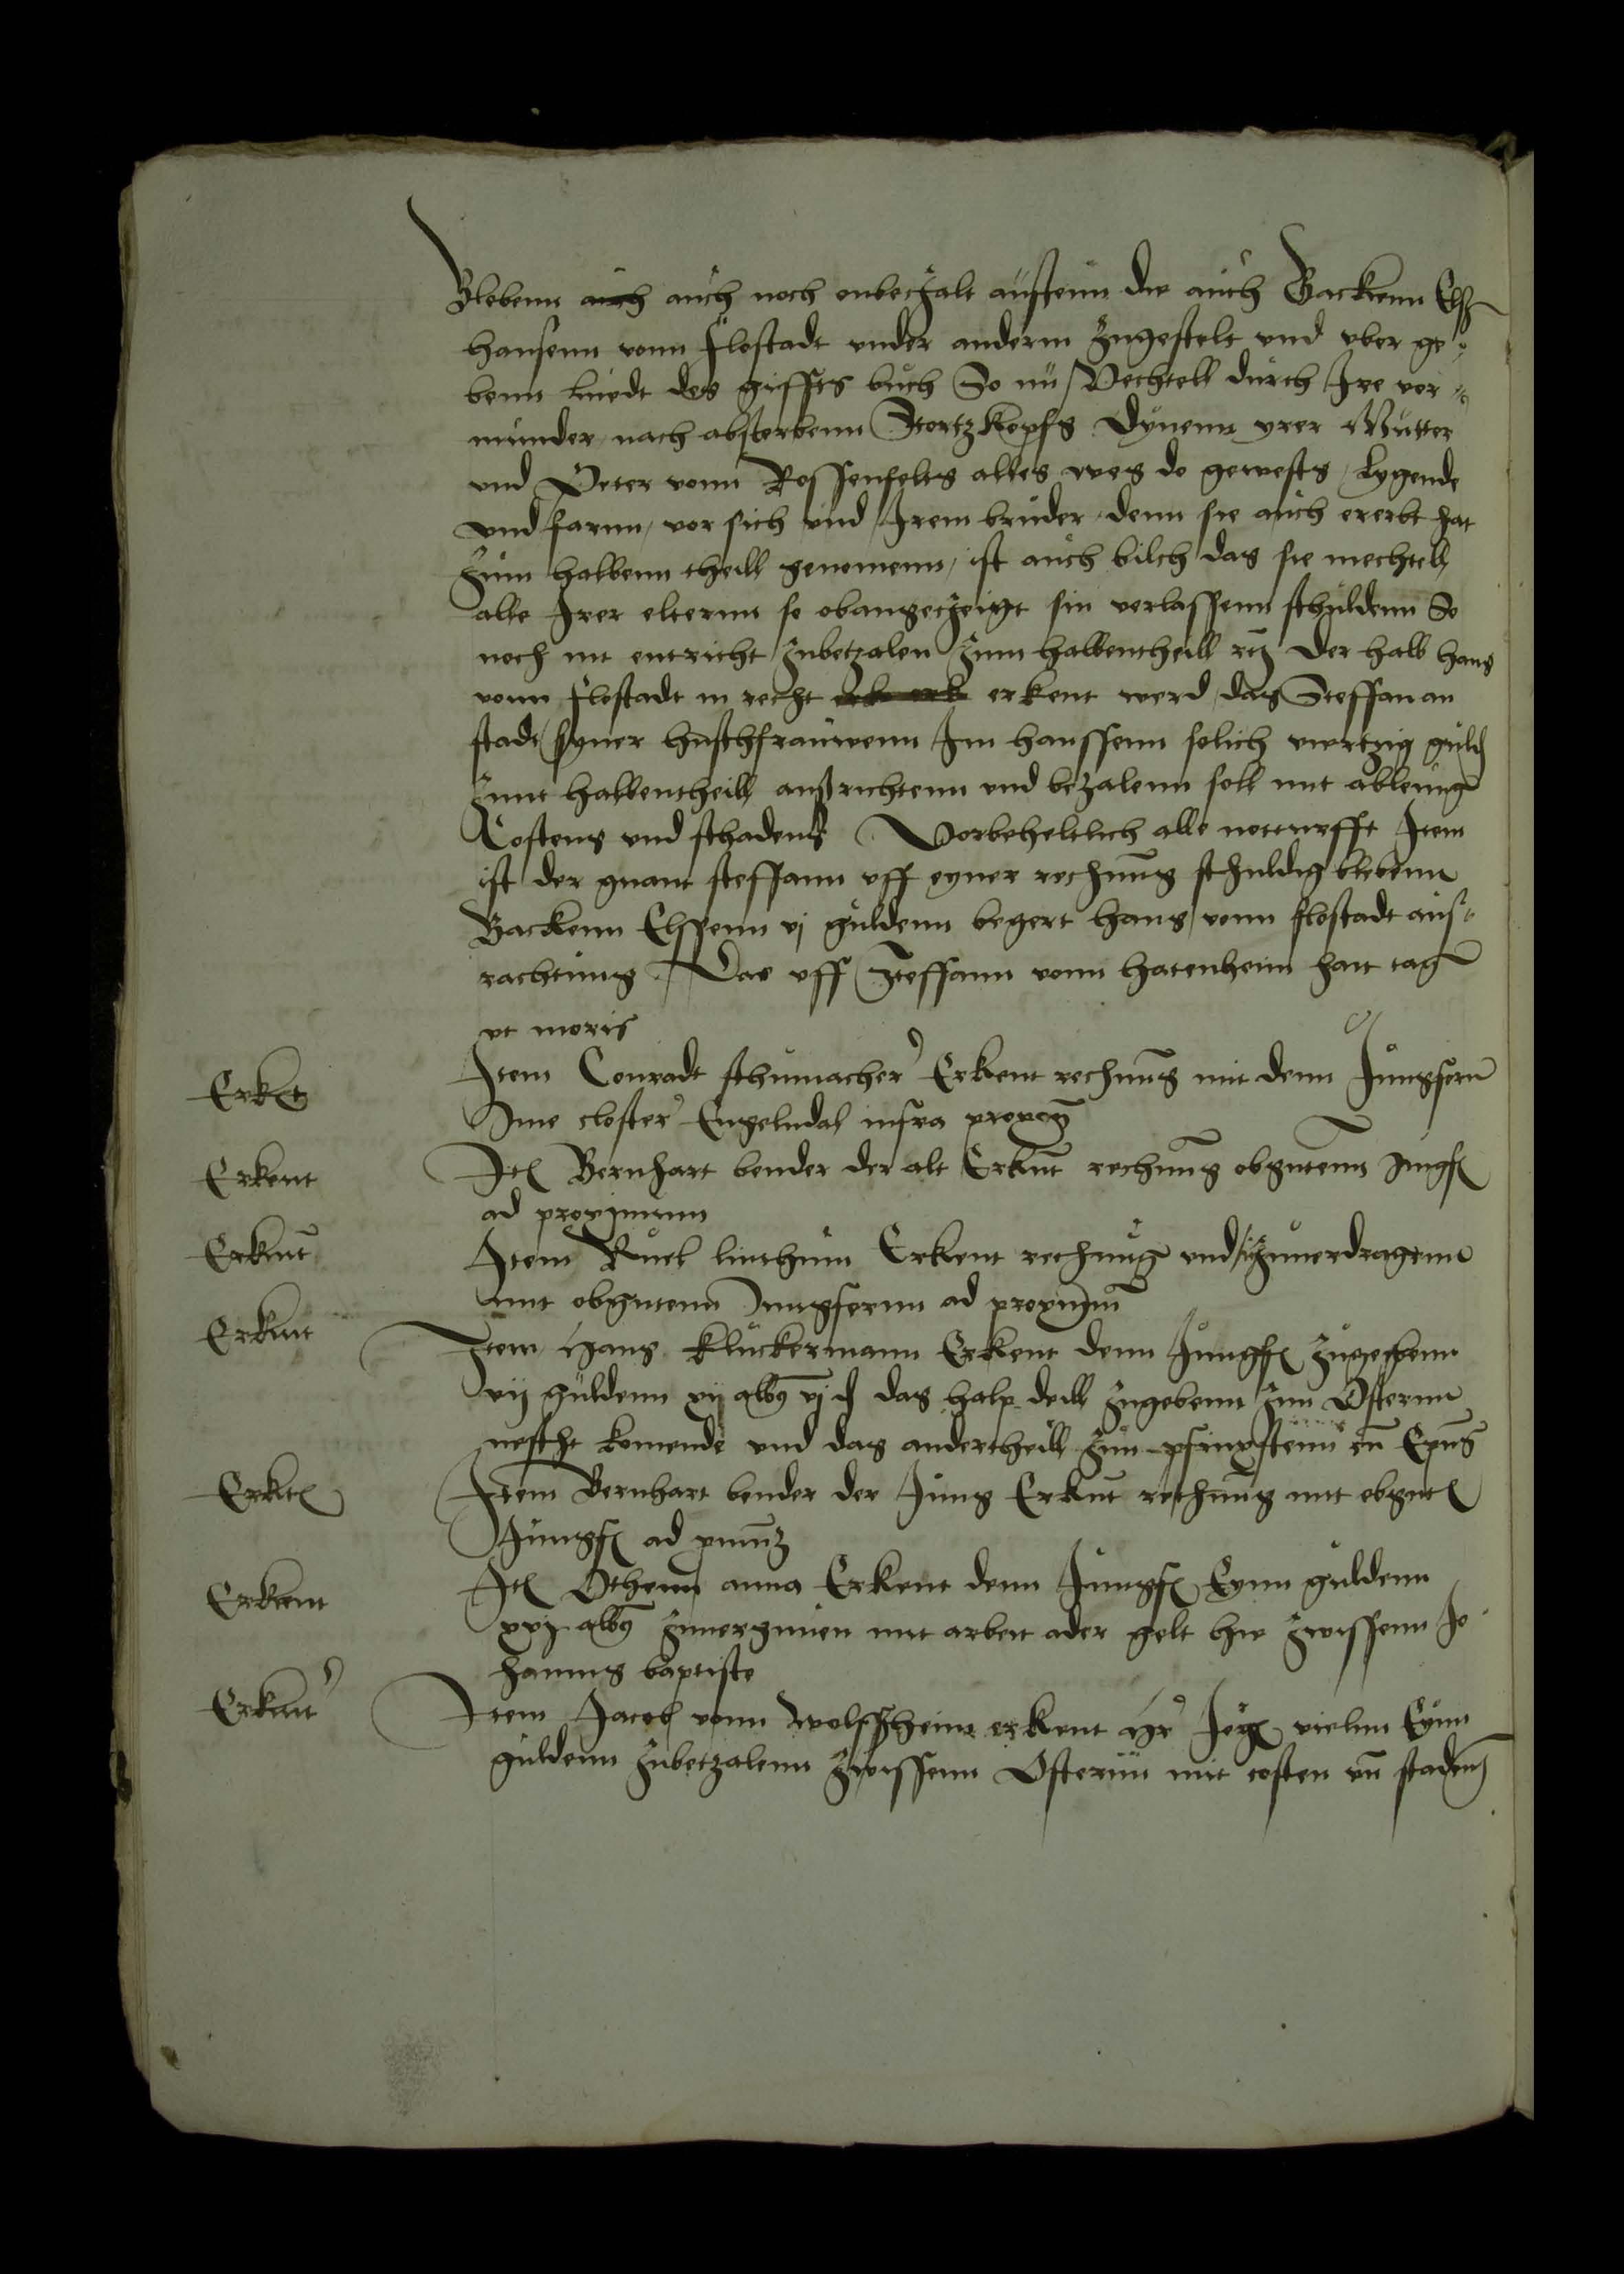 Blebenn auch auch noch onbeczalt austenn die auch Backenn Elß
hansenn vonn flostadt vnder anderm zugestelt vnd vber ge
benn luedt des gissts buch So nu Mechtell durch Ire vor
munder nach absterbenn Stortzkopfs Dynenn yrer Mutter
vnd Peter vonn Rossenfelts alles wes do gewests lygende
vnd farnn vor sich vnd Irem bruder denn sie auch ererbt hat
zum halbenn theill genomenn ist auch bilch das sie mechtell
alle Irer elternn so obangeczeigt sin verlassenn schuldenn So
noch nit entricht zubetzalen zum halbentheill Der halb hans
vonn flostadt in recht erk erk erkent werd das Steffan an
stadt syner husthfrauwenn Im hanssenn solich viertzig guld
zum halbentheill außrichtenn vnd bezalenn soll mit ableung
Costens vnd schadens Vorbeheltlich alle notturfft Item
ist der gnant steffann vff eyner rechnung schuldig blebenn
Backenn Elssenn vj guldenn begert hans vonn flostadt aus
rachtung Dar vff Steffann vonn hatenheim hatt tag
vt moris
Erkt Item Conradt schumacher Erkent rechnung mit denn Jungfern
Ime closter Engelndal infra
Erkent Itm Bernhart bender der alt Erknt rechnung obgntenn Jungf
ad proximum
Erknt Item Ruel linthum Erkent rechnug vnd zuuerdragenn
mit obgntenn Jungfernn ad proximum
Erknt Item Hans kluckermann Erkent denn Jungf zugebenn
vij guldenn xij alb vj d das halp deill zugebenn zun Osternn
nescht komende vnd das andertheill zun pfinxstenn
Erkt Item Bernhart bender der Jung Erknt rechnung mit obgnt
Jungf ad
Erkent Itm Othenn anna Erkent denn Jungf Eynn guldenn
xxj alb mit arbeit ader gelt hie zwissenn Jo
hannis baptiste
Erknt Item Jacob vonn wolffsheim erkent Hr vielnn Eynn
guldenn zubetzalenn zwissenn Osternn mit costen vn staden